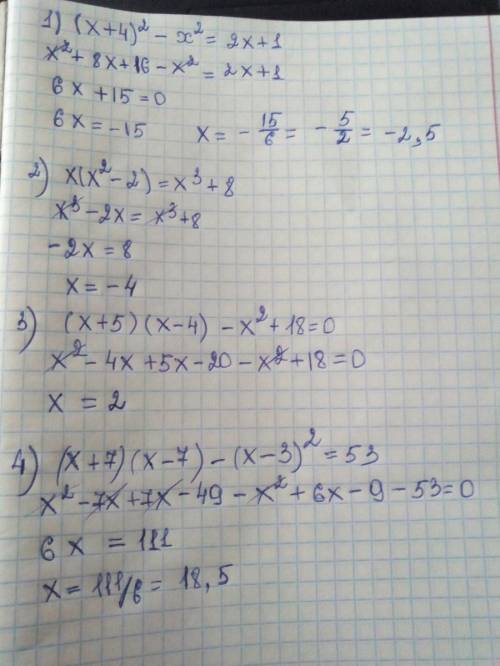 1) (x+4)² - x² = 2x+1
x² + 8x + 16 - x² = 2x+1
6x + 15 = 0
6x = -15 x = - 15/6 = - 5/2 = -2,5
2) x(x² - 2) = x³ + 8
x³ - 2x = x³ + 8
-2x = 8
x = -4
3) (x+5)(x-4) - x² + 18 = 0
x² - 4x + 5x - 20 - x² + 18 = 0
x = 2
4) (x+7)(x-7) - (x-3)² = 53
x² - 7x + 7x - 49 - x² + 6x - 9 - 53 = 0
6x = 111
x = 111/6 = 18,5